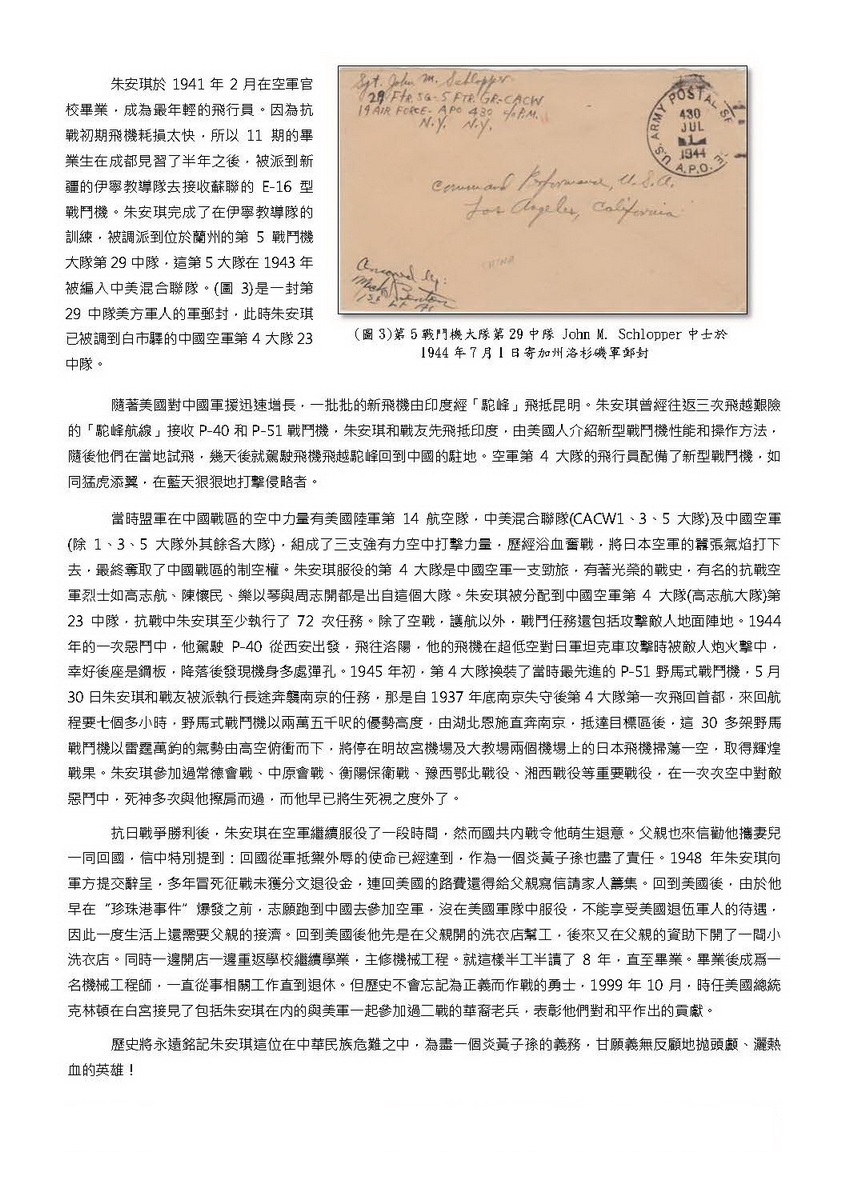 朱安琪於 1941 年 2 月在空軍官
校畢業，成為最年輕的飛行員。因為抗
戰初期飛機耗損太快，所以 11 期的畢
業生在成都見習了半年之後，被派到新
疆的伊寧教導隊去接收蘇聯的 E-16 型
戰鬥機。朱安琪完成了在伊寧教導隊的
訓練，被調派到位於蘭州的第 5 戰鬥機
大隊第 29 中隊，這第 5 大隊在 1943 年
被編入中美混合聯隊。(圖 3)是一封第
29 中隊美方軍人的軍郵封，此時朱安琪
已被調到白市驛的中國空軍第 4 大隊 23
中隊。
Sgt. John M. Schlopper
29 FTR. SQ-5 FTR. GR-CACW
14 AIR FORCE-APO 430 c/o P.M.
N.Y. N.Y.
U.S. ARMY POSTAL SE
430
JUL
1
1944
A.P.O.
Command Performance, U.S.A.
Los Angeles, California
CHINA
by:
1st Lt
(圖 3)第 5 戰鬥機大隊第 29 中隊 John M. Schlopper 中士於
1944 年 7 月 1 日寄加州洛杉磯軍郵封
隨著美國對中國軍援迅速增長，一批批的新飛機由印度經「駝峰」飛抵昆明。朱安琪曾經往返三次飛越艱險
的「駝峰航線」接收 P-40 和 P-51 戰鬥機，朱安琪和戰友先飛抵印度，由美國人介紹新型戰鬥機性能和操作方法，
隨後他們在當地試飛，幾天後就駕駛飛機飛越駝峰回到中國的駐地。空軍第 4 大隊的飛行員配備了新型戰鬥機，如
同猛虎添翼，在藍天狠狠地打擊侵略者。
當時盟軍在中國戰區的空中力量有美國陸軍第 14 航空隊，中美混合聯隊(CACW1、3、5 大隊)及中國空軍
(除 1、3、5 大隊外其餘各大隊)，組成了三支強有力空中打擊力量，歷經浴血奮戰，將日本空軍的囂張氣焰打下
去，最終奪取了中國戰區的制空權。朱安琪服役的第 4 大隊是中國空軍一支勁旅，有著光榮的戰史，有名的抗戰空
軍烈士如高志航、陳懷民、樂以琴與周志開都是出自這個大隊。朱安琪被分配到中國空軍第 4 大隊(高志航大隊)第
23 中隊，抗戰中朱安琪至少執行了 72 次任務。除了空戰，護航以外，戰鬥任務還包括攻擊敵人地面陣地。1944
年的一次惡鬥中，他駕駛 P-40 從西安出發，飛往洛陽，他的飛機在超低空對日軍坦克車攻擊時被敵人炮火擊中，
幸好後座是鋼板，降落後發現機身多處彈孔。1945 年初，第 4 大隊換裝了當時最先進的 P-51 野馬式戰鬥機，5 月
30 日朱安琪和戰友被派執行長途奔襲南京的任務，那是自 1937 年底南京失守後第 4 大隊第一次飛回首都，來回航
程要七個多小時，野馬式戰鬥機以兩萬五千呎的優勢高度，由湖北恩施直奔南京，抵達目標區後，這 30 多架野馬
戰鬥機以雷霆萬鈞的氣勢由高空俯衝而下，將停在明故宮機場及大教場兩個機場上的日本飛機掃蕩一空，取得輝煌
戰果。朱安琪參加過常德會戰、中原會戰、衡陽保衛戰、豫西鄂北戰役、湘西戰役等重要戰役，在一次次空中對敵
惡鬥中，死神多次與他擦肩而過，而他早已將生死視之度外了。
抗日戰爭勝利後，朱安琪在空軍繼續服役了一段時間，然而國共內戰令他萌生退意。父親也來信勸他攜妻兒
一同回國，信中特別提到：回國從軍抵禦外辱的使命已經達到，作為一個炎黃子孫也盡了責任。1948 年朱安琪向
軍方提交辭呈，多年冒死征戰未獲分文退役金，連回美國的路費還得給父親寫信請家人籌集。回到美國後，由於他
早在“珍珠港事件”爆發之前，志願跑到中國去參加空軍，沒在美國軍隊中服役，不能享受美國退伍軍人的待遇，
因此一度生活上還需要父親的接濟。回到美國後他先是在父親開的洗衣店幫工，後來又在父親的資助下開了一間小
洗衣店。同時一邊開店一邊重返學校繼續學業，主修機械工程。就這樣半工半讀了 8 年，直至畢業。畢業後成爲一
名機械工程師，一直從事相關工作直到退休。但歷史不會忘記為正義而作戰的勇士，1999 年 10 月，時任美國總統
克林頓在白宮接見了包括朱安琪在内的與美軍一起參加過二戰的華裔老兵，表彰他們對和平作出的貢獻。
歷史將永遠銘記朱安琪這位在中華民族危難之中，為盡一個炎黃子孫的義務，甘願義無反顧地拋頭顱、灑熱
血的英雄！